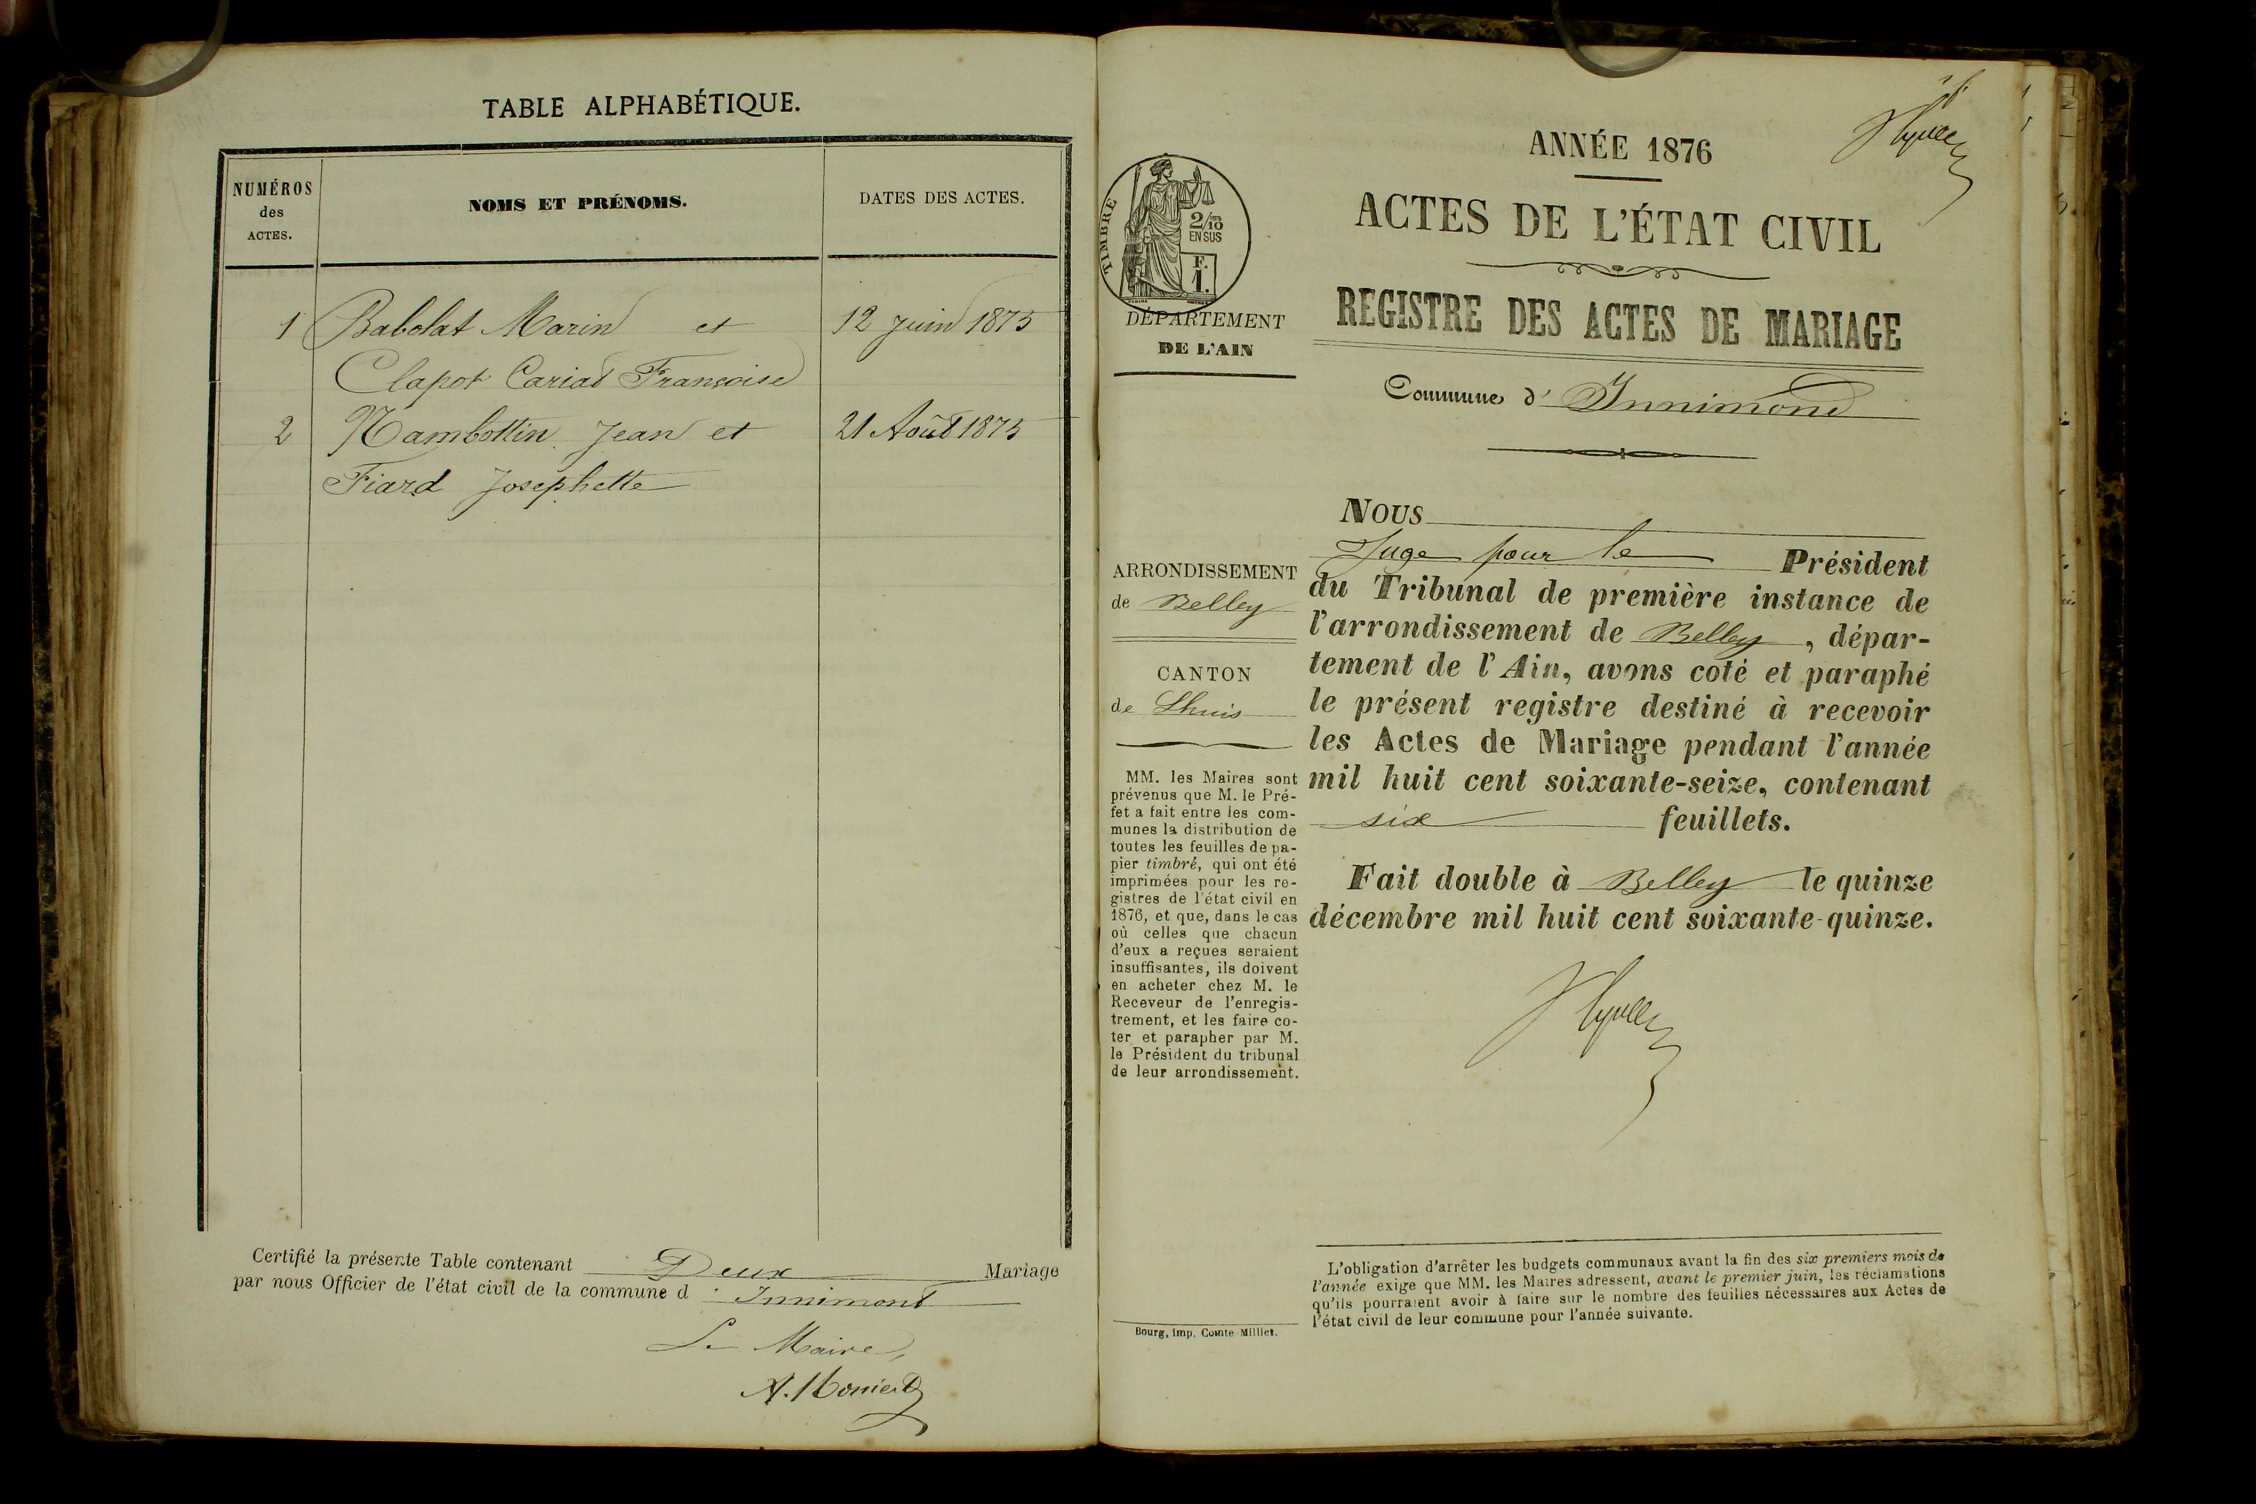 TABLE ALPHABÉTIQUE.
NUMÉROS
des
ACTES.
NOMS ET PRÉNOMS.
DATES DES ACTES.
1 Babolat Marin et 12 Juin 1875
Clapot Cariat Françoise
2 Nambottin Jean et 21 Août 1875
Fiard Josephette
Certifié la présente Table contenant Deux Mariage
par nous Officier de l'état civil de la commune d Innimont
Le Maire,
TIMBRE
2/10
EN SUS
F.
1.
DÉPARTEMENT
DE L'AIN
ARRONDISSEMENT
de Belley
CANTON
de Lhuis
MM. les Maires sont
prévenus que M. le Pré-
fet a fait entre les com-
munes la distribution de
toutes les feuilles de pa-
pier timbré, qui ont été
imprimées pour les re-
gistres de l'état civil en
1876, et que, dans le cas
où celles que chacun
d'eux a reçues seraient
insuffisantes, ils doivent
en acheter chez M. le
Receveur de l'enregis-
trement, et les faire co-
ter et parapher par M.
le Président du tribunal
de leur arrondissement.
Bourg, imp. Comte-Milliet.
ANNÉE 1876
ACTES DE L'ÉTAT CIVIL
REGISTRE DES ACTES DE MARIAGE
Commune d' Innimond
NOUS
Juge pour le Président
du Tribunal de première instance de
l'arrondissement de Belley, dépar-
tement de l'Ain, avons coté et paraphé
le présent registre destiné à recevoir
les Actes de Mariage pendant l'année
mil huit cent soixante-seize, contenant
six feuillets.
Fait double à Belley le quinze
décembre mil huit cent soixante-quinze.
L'obligation d'arrêter les budgets communaux avant la fin des six premiers mois de
l'année exige que MM. les Maires adressent, avant le premier juin, les réclamations
qu'ils pourraient avoir à faire sur le nombre des feuilles nécessaires aux Actes de
l'état civil de leur commune pour l'année suivante.